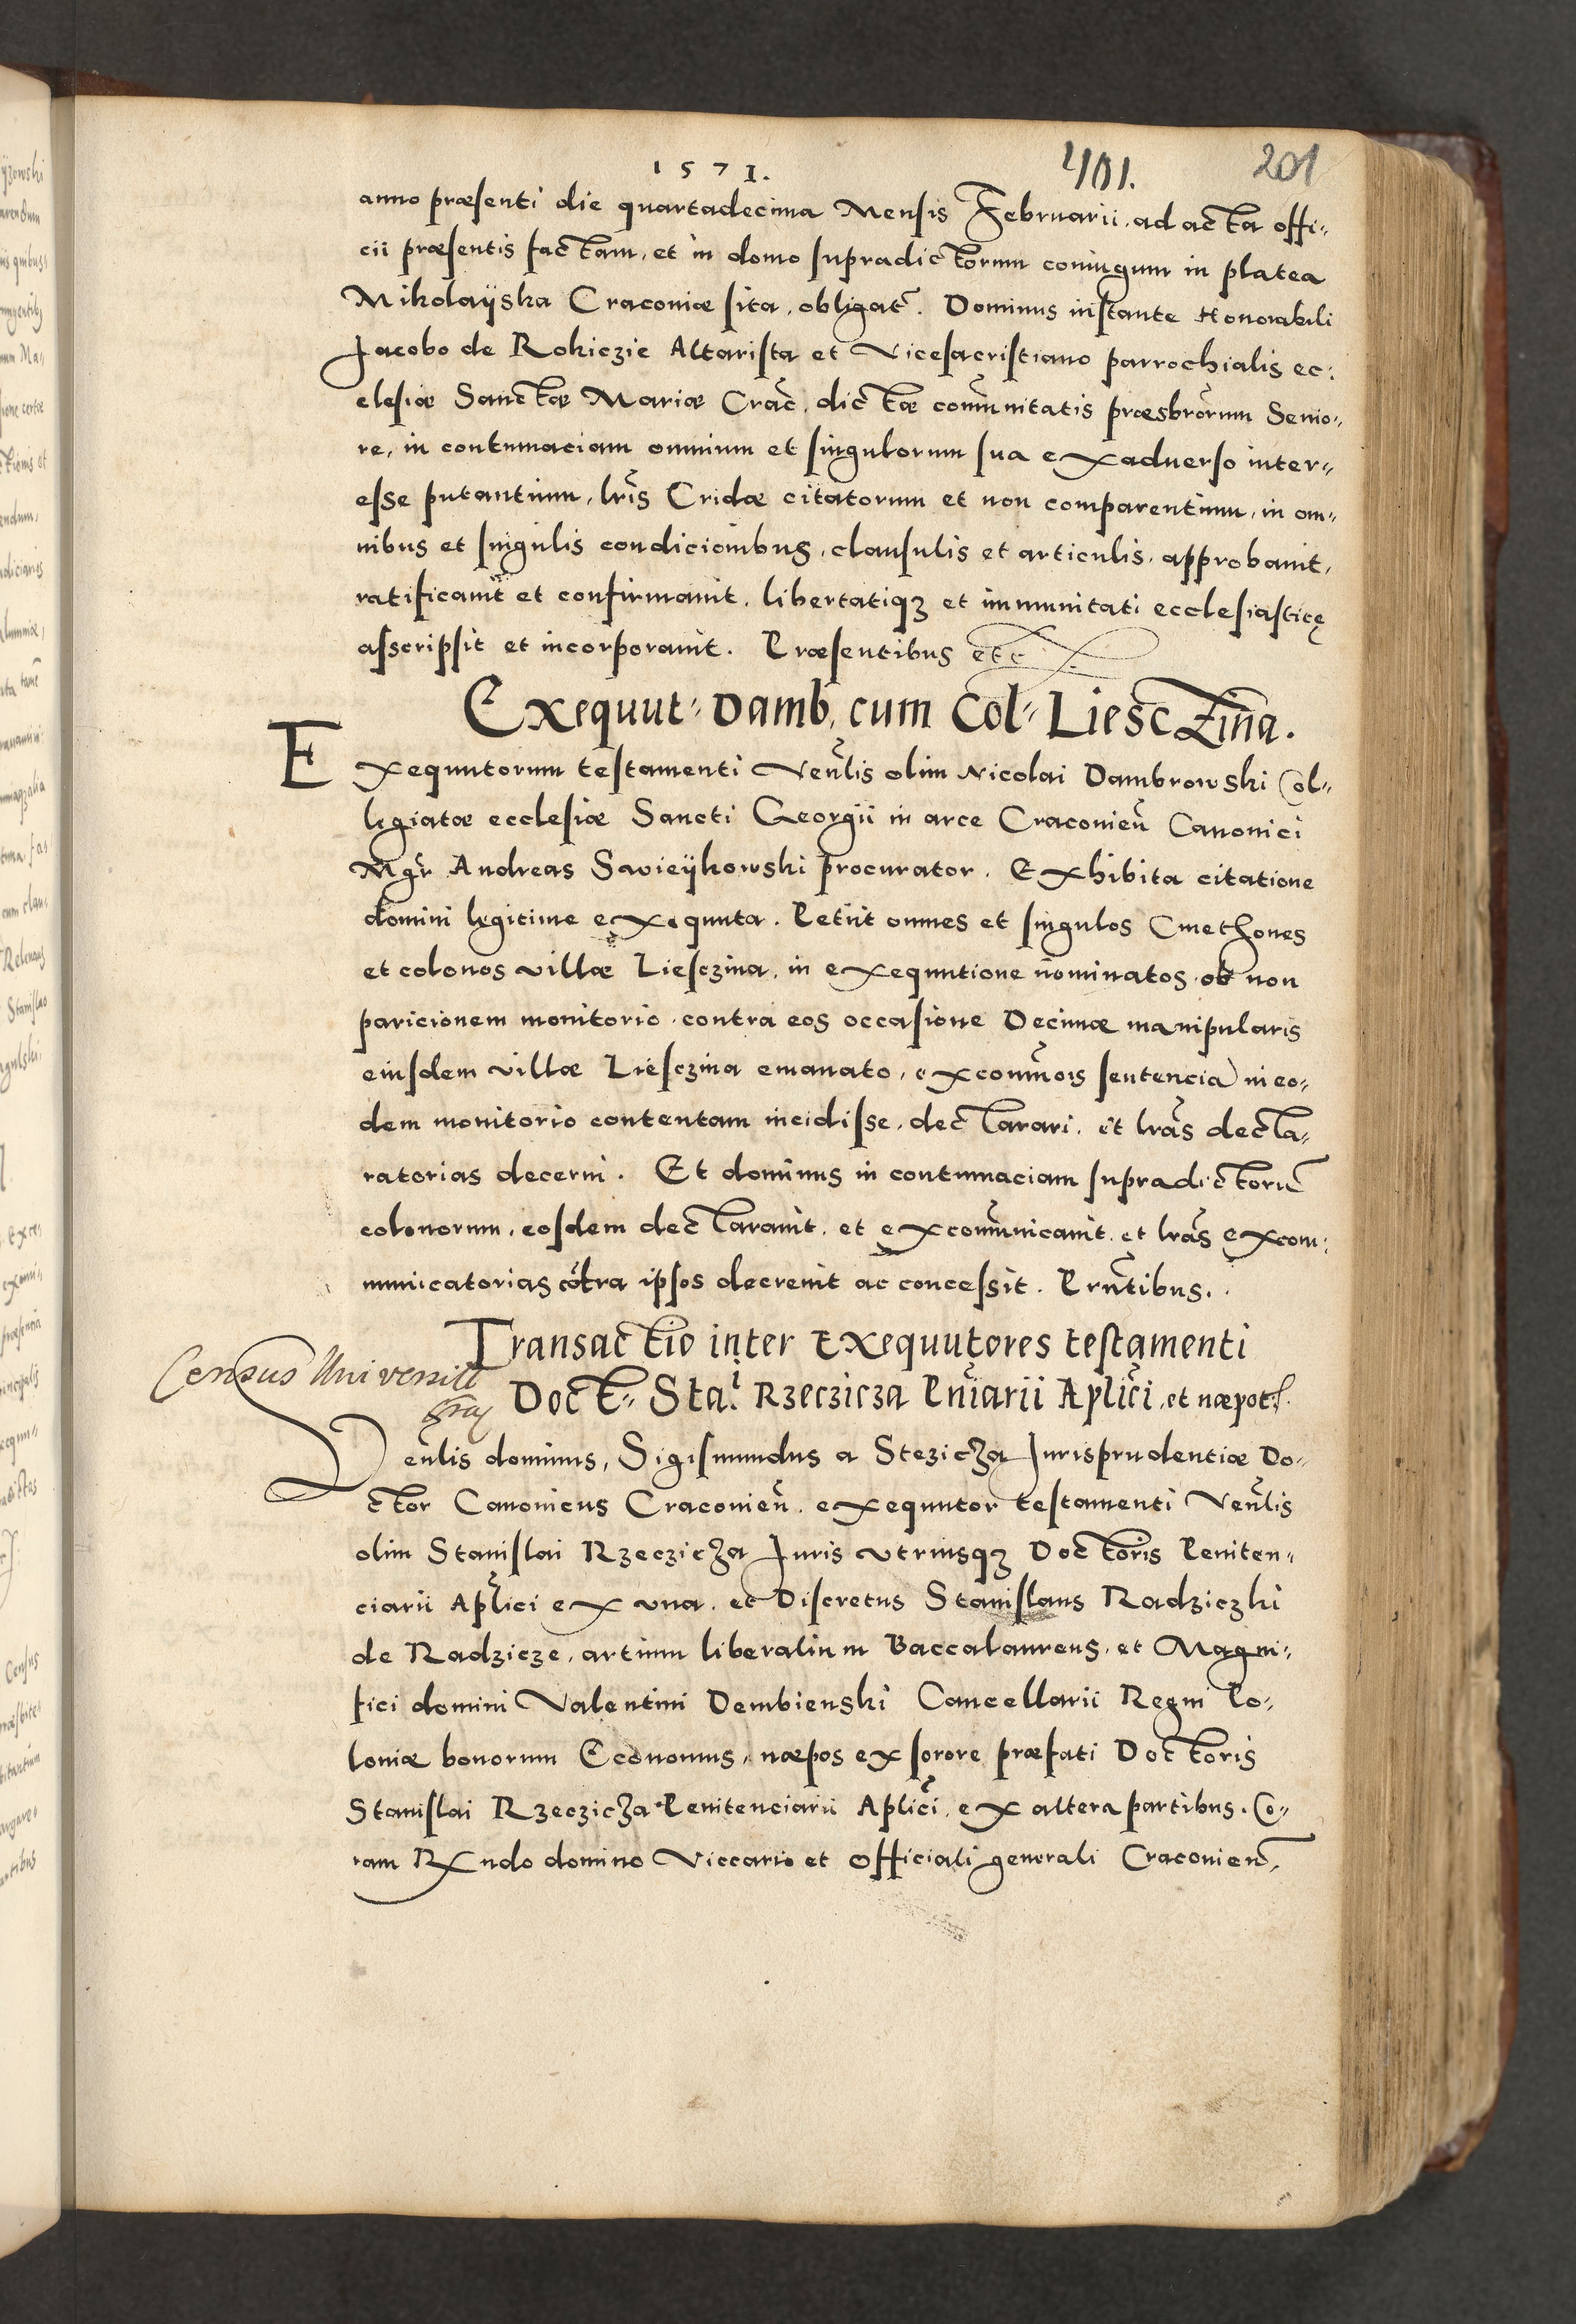 1571.
401.
201
anno præsenti die quartadecima Mensis Februarii, ad acta offi-
cii præsentis factam, et in domo supradictorum coniugum in platea
Mikolayska Craconiæ sita, obligat. Dominus instante Honorabili
Jacobo de Rokiczie Altarista et Vicesacristiano parrochialis ec:
clesiæ Sanctæ Mariæ Crac. dictæ comunitatis præsbrorum Senio-
re, in contumaciam omnium et singulorum sua exaduerso inter-
esse putantium, lris Cridæ citatorum et non comparentium, in om-
nibus et singulis condicionibus, clausulis et articulis, approbauit,
ratificauit et confirmauit, libertatiqz et immunitati ecclesiasticę
asscripsit et incorporauit. Præsentibus etc
Exequut- Damb, cum Col- Liesczina.
Exequutorum testamenti Venlis olim Nicolai Dambrowski Col-
legiatæ ecclesiæ Sancti Georgii in arce Craconien Canonici
Mgr Andreas Swieykowski procurator. Exhibita citatione
domini legitime exequuta. Petiit omnes et singulos Cmethones
et colonos villæ Liesczina, in exequutione nominatos, ob non
paricionem monitorio contra eos occasione Decimæ manipularis
eiusdem villæ Liesczina emanato, excominois sentencia in eo-
dem monitorio contentam incidisse, declarari, et lras decla-
ratorias decerni. Et dominus in contumaciam supradictoru
colonorum, eosdem declarauit, et excomunicauit, et lras excom:
municatorias cotra ipsos decreuit ac concessit. Prntibus.
Transactio inter Exequutores testamenti
Doct- Sta: Rzeczicza Pniarii Aplici, et næpot.
Census Universitt
Venlis dominus, Sigismundus a Stezicza Jurisprudentiæ Do-
ctor Canonicus Craconien. exequutor testamenti Venlis
olim Stanislai Rzeczicza Juris vtriusqz Doctoris Peniten-
ciarii Aplici ex vna, et Discretus Stanislaus Radziczki
de Radzicze, artium liberalium Baccalaureus, et Magni-
fici domini Valentini Dembienski Cancellarii Regni Po-
loniæ bonorum Economus, næpos ex sorore præfati Doctoris
Stanislai Rzeczicza Penitenciarii Aplici, ex altera partibus. Co-
ram Rndo domino Viccario et Officiali generali Craconien,